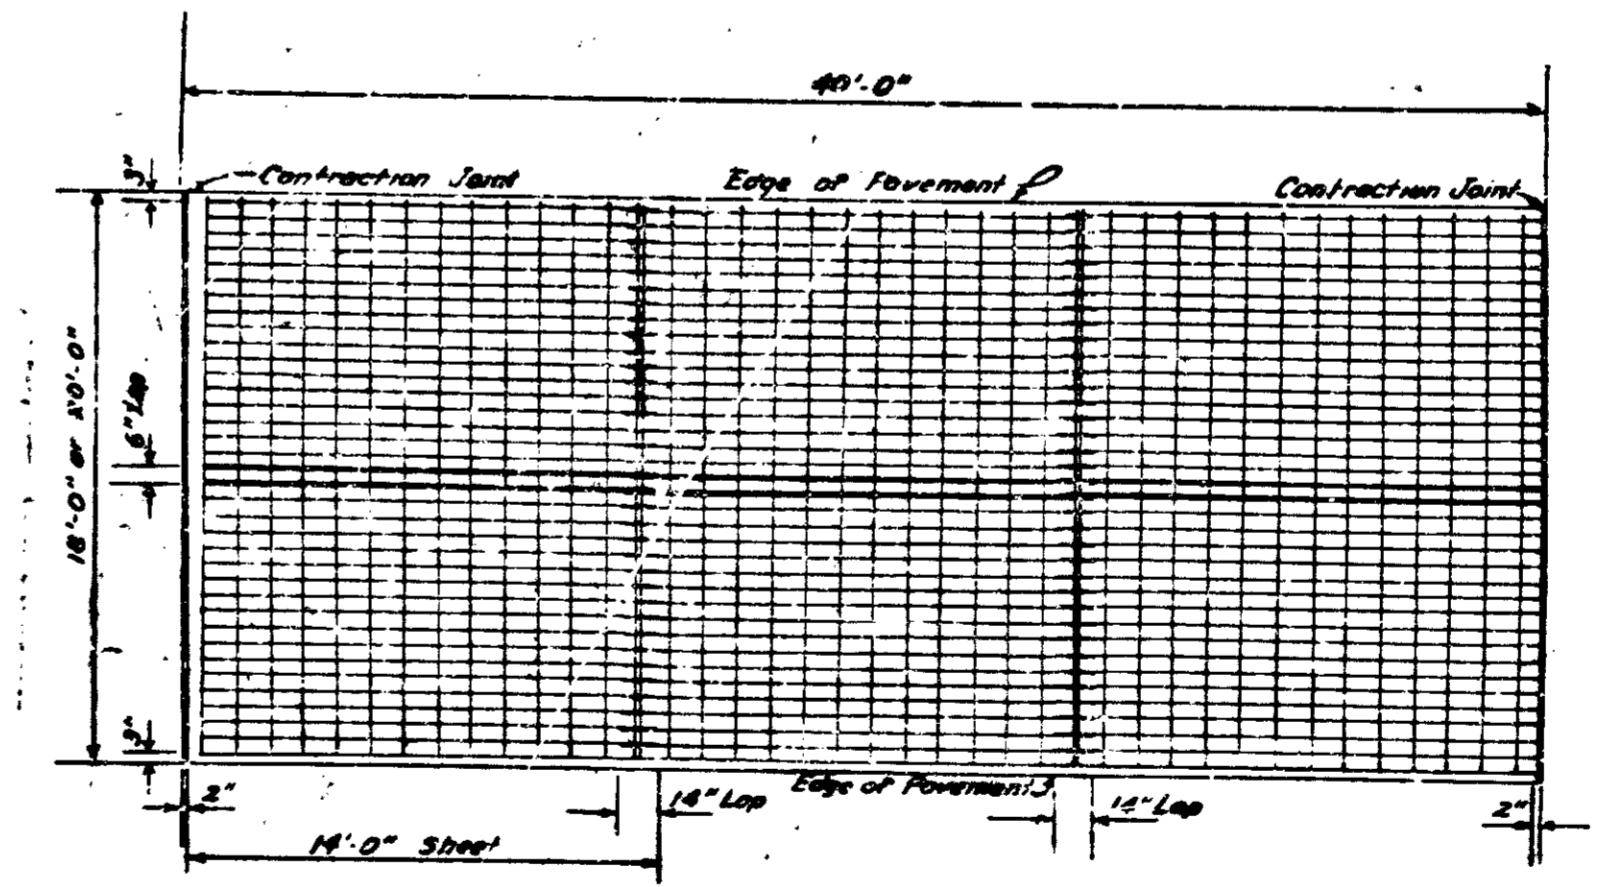 40'-0"
3"
Contraction Joint
Edge of Pavement
Contraction Joint
18'-0" or 20'-0"
6" Lap
3"
2"
14" Lap
Edge of Pavement
14" Lap
2"
14'-0" Sheet